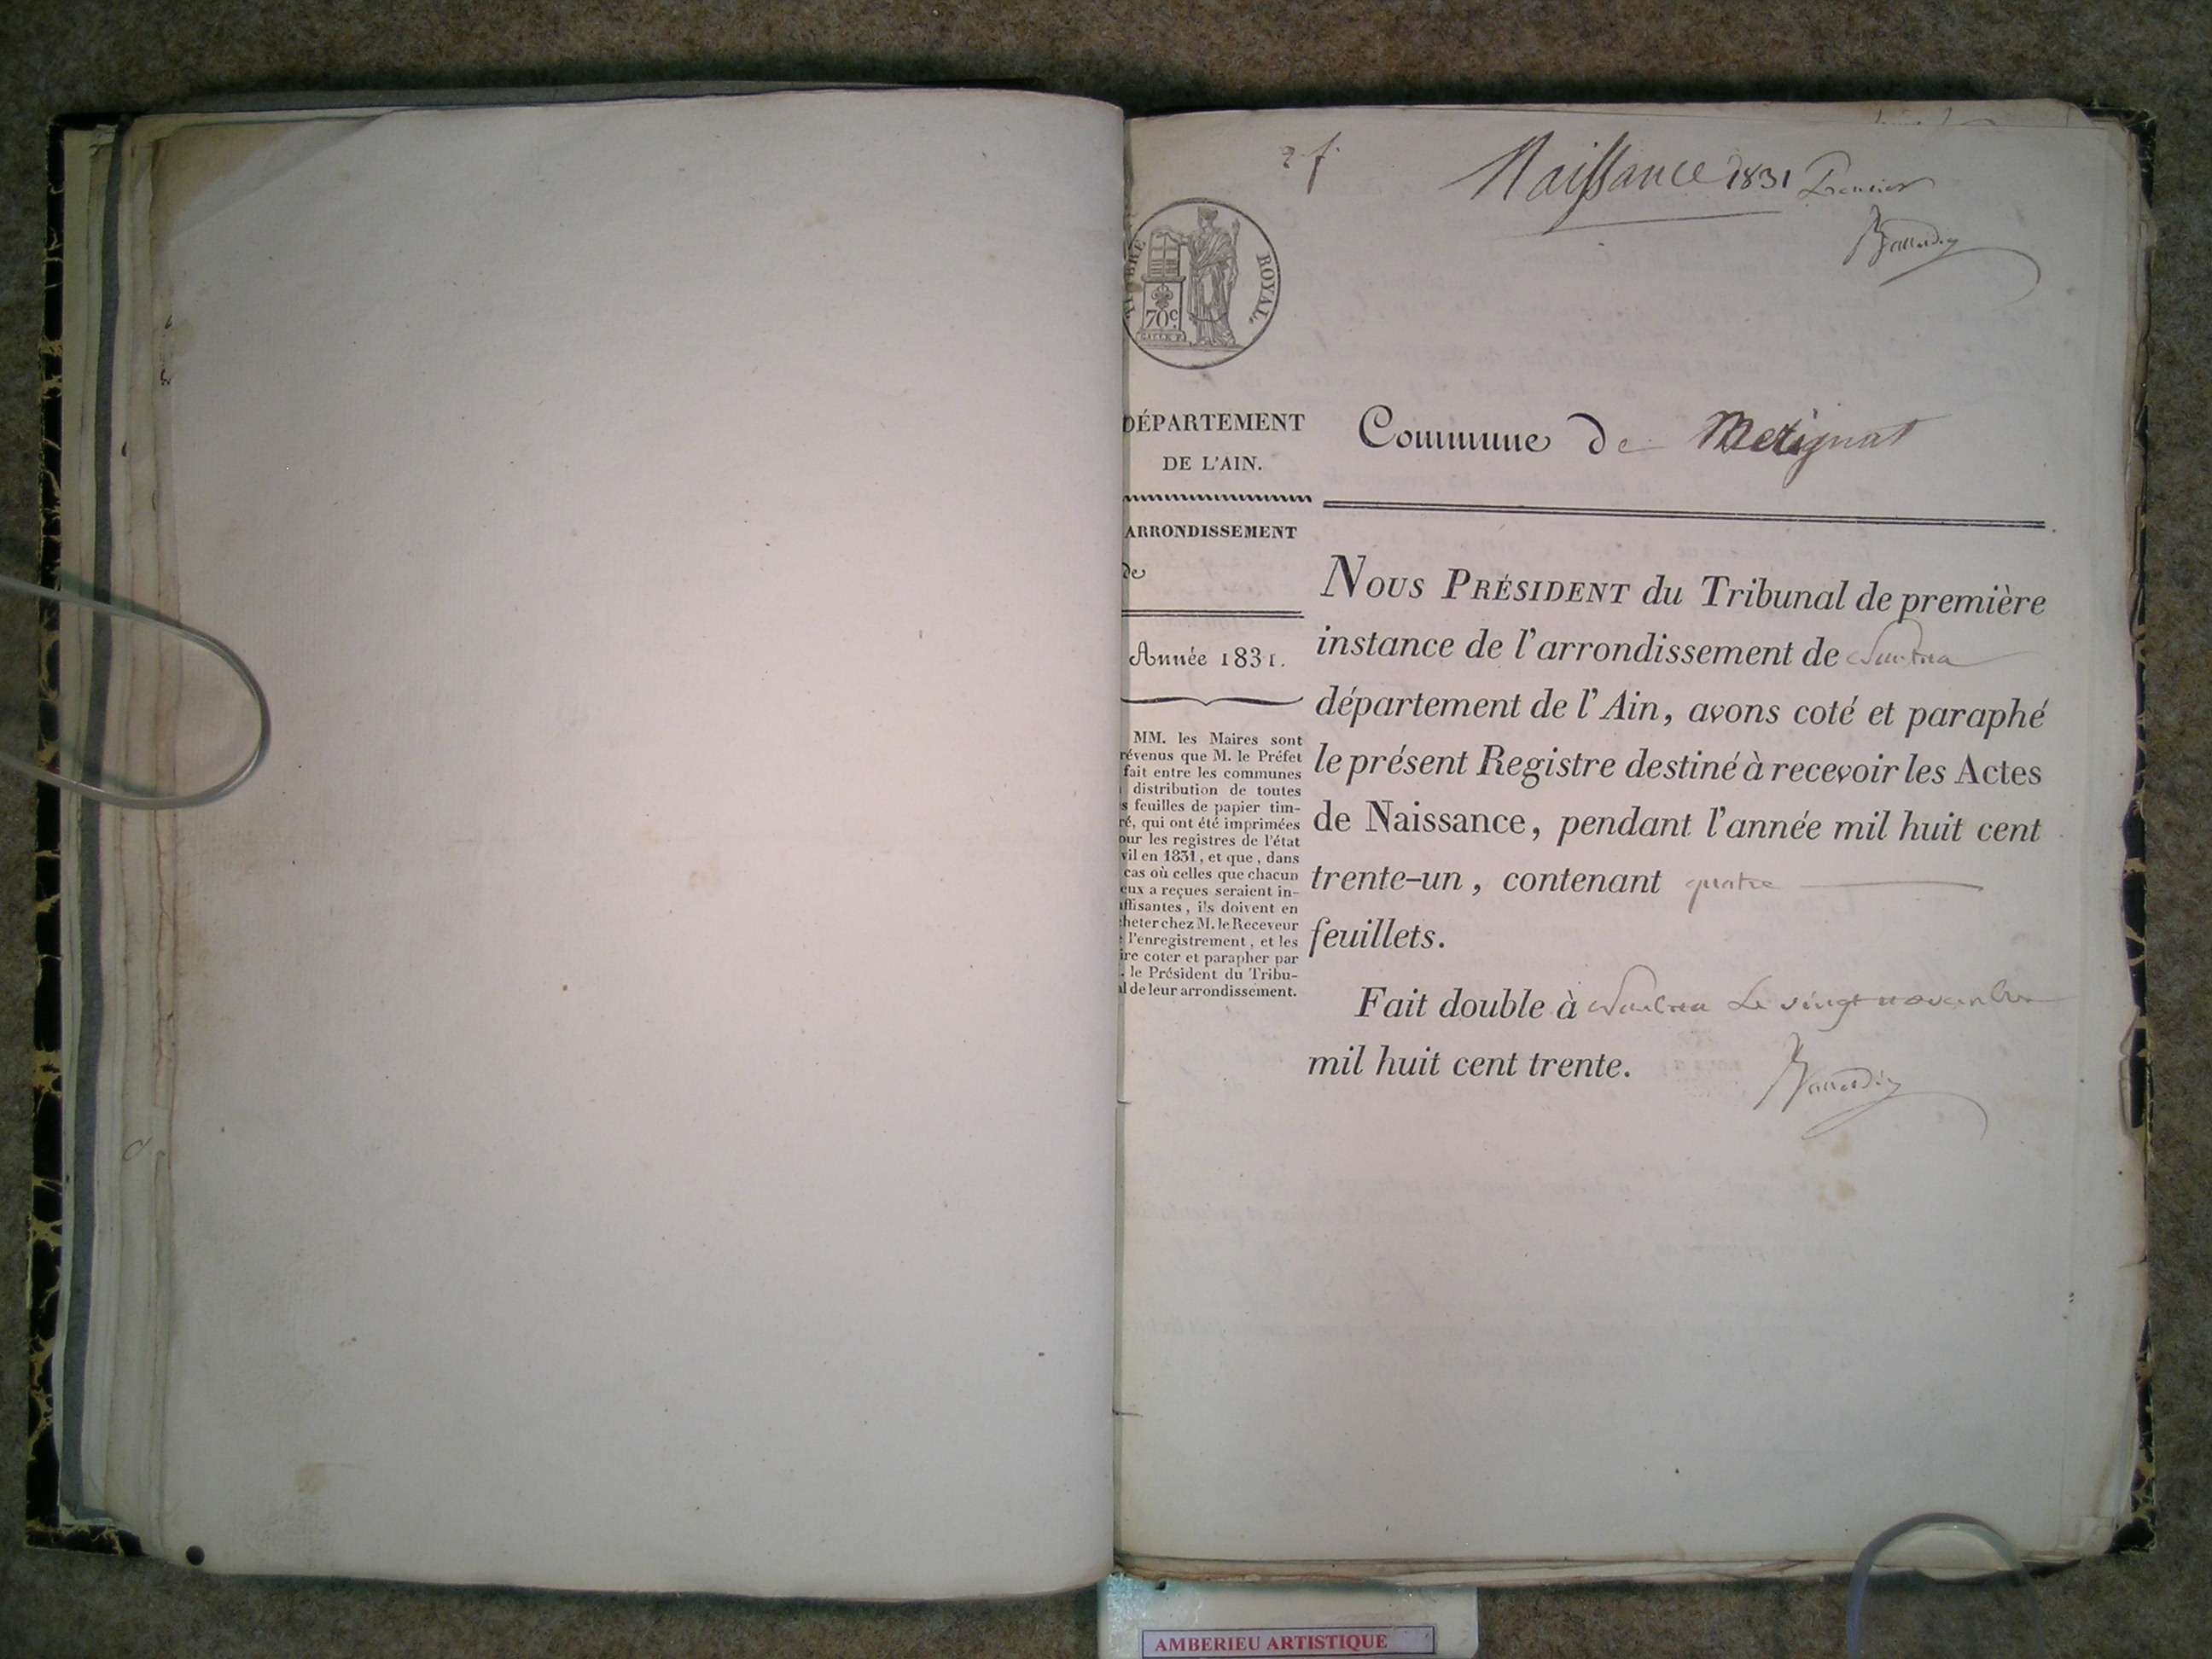 2 f.
Naissance 1831 Premier
TIMBRE ROYAL.
70c.
DÉPARTEMENT
DE L'AIN.
ARRONDISSEMENT
de
Année 1831.
MM. les Maires sont
révenus que M. le Préfet
fait entre les communes
distribution de toutes
s feuilles de papier tim-
ré, qui ont été imprimées
our les registres de l'état
vil en 1831, et que, dans
cas où celles que chacun
eux a reçues seraient in-
ffisantes, ils doivent en
cheter chez M. le Receveur
l'enregistrement, et les
ire coter et parapher par
. le Président du Tribu-
al de leur arrondissement.
Commune de Mérignat
NOUS PRÉSIDENT du Tribunal de première
instance de l'arrondissement de Nantua
département de l'Ain, avons coté et paraphé
le présent Registre destiné à recevoir les Actes
de Naissance, pendant l'année mil huit cent
trente-un, contenant quatre
feuillets.
Fait double à Nantua Le vingt novembre
mil huit cent trente.
AMBERIEU ARTISTIQUE